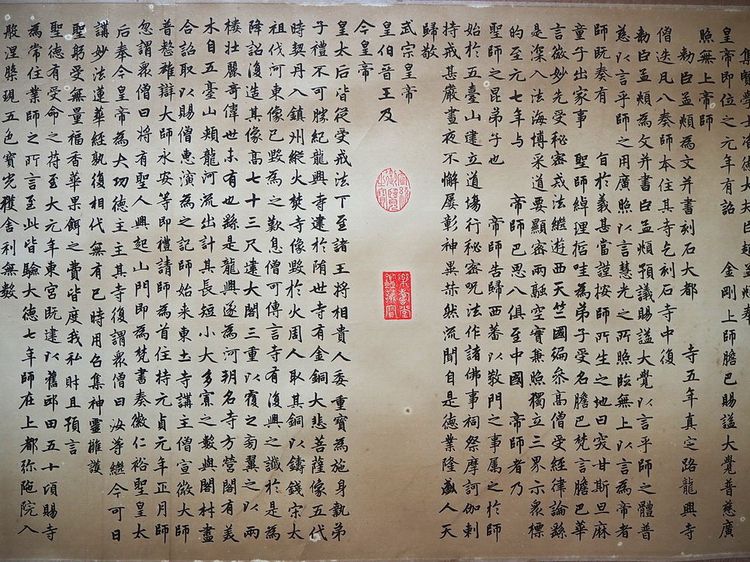 集賢學士資德大夫臣趙孟頫奉
皇帝即位之元年有詔　金剛上師膽巴賜謚大覺普慈廣
照無上帝師
敕臣孟頫為文并書刻石大都　寺五年真定路龍興寺
僧迭凡八奏師本住其寺乞刻石寺中復
敕臣孟頫為文并書臣孟頫預議賜謚大覺以言乎師之體普
慈以言乎師之用廣照以言慧光之所照臨無上以言為帝者
師既奏有　旨於義甚當謹按師所生之地曰突甘斯旦麻
童子出家事　聖師綽理哲哇為弟子受名膽巴梵言膽巴華
言微妙先受秘密戒法繼遊西天竺國徧參高僧受經律論繇
是深入法海博采道要顯密兩融空實兼照獨立三界示眾標
的至元七年與　帝師巴思八俱至中國　帝師者乃
聖師之昆弟子也　帝師告歸西蕃以教門之事屬之於師
始於五臺山建立道場行秘密呪法作諸佛事祠祭摩訶伽剌
持戒甚嚴晝夜不懈屢彰神異赫然流聞自是德業隆盛人天
歸敬
武宗皇帝
皇伯晉王及
今皇帝
皇太后皆從受戒法下至諸王將相貴人委重寶為施身執弟
子禮不可勝紀龍興寺建於隋世寺有金銅大悲菩薩像五代
時契丹入鎮州縱火焚寺像毀於火周人取其銅以鑄錢宋太
祖伐河東像已毀為之歎息僧可傳言寺有復興之讖於是為
降詔復造其像高七十三尺建大閣三重以覆之旁翼之以兩
樓壯麗奇偉世未有也繇是龍興遂為河朔名寺方營閣有美
木自五臺山頰龍河流出計其長短小大多寡之數與閣材盡
合詔取以賜僧惠演為之記師始來東土寺講主僧宣微大師
普整雄辯大師永安等即禮請師為首住持元貞元年正月師
忽謂眾僧曰將有聖人興起山門即為梵書奏徽仁裕聖皇太
后奉今皇帝為大功德主主其寺復謂眾僧曰汝等繼今可日
講妙法蓮華經孰復相代無有已時用召集神靈擁護
聖躬受無量福香華果餌之費皆度我私財且預言
聖德有受命之符至大元年東宮既建以舊邸田五十頃賜寺
為常住業師之所言至此皆驗大德七年師在上都彌陁院入
般涅槃現五色寶光獲舍利無數